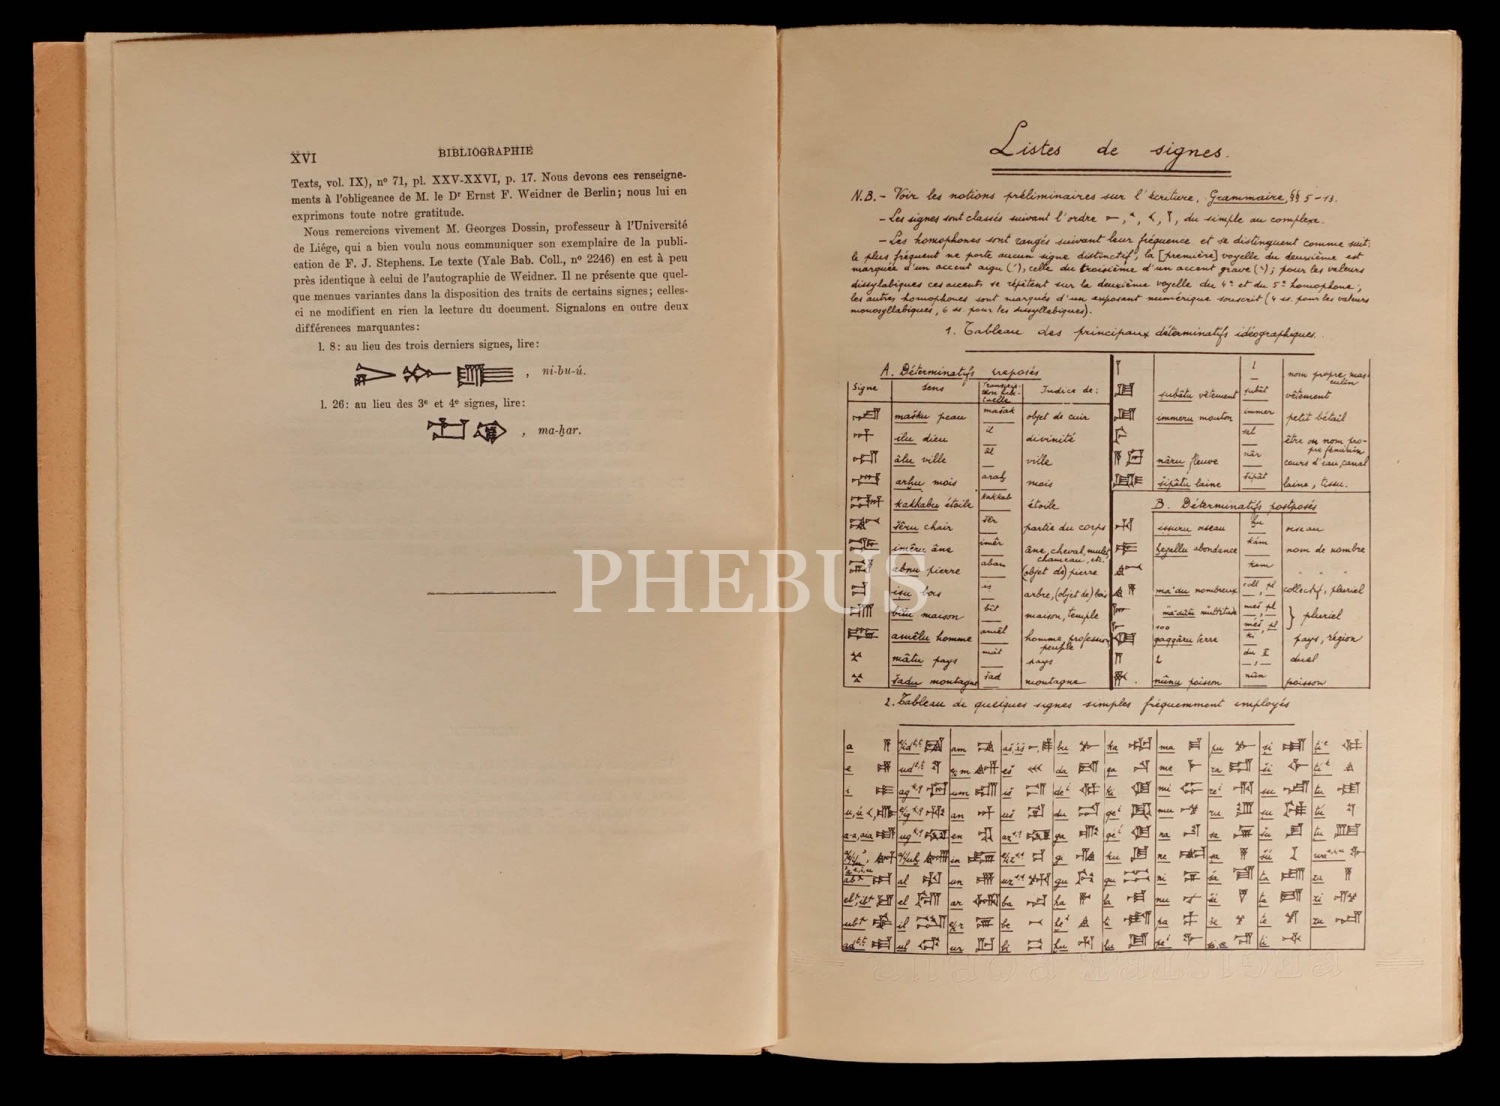 XVI
BIBLIOGRAPHIE
Texts, vol. IX), nº 71, pl. XXV-XXVI, p. 17. Nous devons ces renseigne-
ments à l'obligeance de M. le Dʳ Ernst F. Weidner de Berlin; nous lui en
exprimons toute notre gratitude.
Nous remercions vivement M. Georges Dossin, professeur à l'Université
de Liége, qui a bien voulu nous communiquer son exemplaire de la publi-
cation de F. J. Stephens. Le texte (Yale Bab. Coll., nº 2246) en est à peu
près identique à celui de l'autographie de Weidner. Il ne présente que quel-
que menues variantes dans la disposition des traits de certains signes; celles-
ci ne modifient en rien la lecture du document. Signalons en outre deux
différences marquantes:
l. 8: au lieu des trois derniers signes, lire:
, ni-bu-ú.
l. 26: au lieu des 3ᵉ et 4ᵉ signes, lire:
, ma-ḫar.
PHEBUS
Listes de signes.
N.B. - Voir les notions préliminaires sur l'écriture, Grammaire, §§ 5-13.
- Les signes sont classés suivant l'ordre , du simple au complexe.
- Les homophones sont rangés suivant leur fréquence et se distinguent comme suit:
le plus fréquent ne porte aucun signe distinctif, la [première] voyelle du deuxième est
marquée d'un accent aigu (´), celle du troisième d'un accent grave (`); pour les valeurs
dissyllabiques ces accents se répètent sur la deuxième voyelle du 4ᵉ et du 5ᵉ homophone;
les autres homophones sont marqués d'un exposant numérique souscrit (4 ss. pour les valeurs
monosyllabiques, 6 ss. pour les dissyllabiques).
1. Tableau des principaux déterminatifs idéographiques.
A. Déterminatifs préposés
Signe sens Indice de:
mašku peau mašak objet de cuir
ilu dieu il divinité
âlu ville âl ville
arḫu mois araḫ mois
kakkabu étoile kakkab étoile
šêru chair šêr partie du corps
imêru âne imêr âne, cheval, mulet, chameau, etc.
abnu pierre aban (objet de) pierre
iṣu bois iṣ arbre, (objet de) bois
bîtu maison bît maison, temple
amêlu homme amêl homme, profession, peuple
mâtu pays mât pays
šadu montagne šad montagne
nom propre masculin
ṣubâtu vêtement ṣubât vêtement
immeru mouton immer petit bétail
être ou nom propre féminin
nâru fleuve nâr cours d'eau, canal
šipâtu laine šipât laine, tissu.
B. Déterminatifs postposés
iṣṣuru oiseau ḫu oiseau
ḫegallu abondance kám nom de nombre
kam " "
ma'du nombreux coll, pl collectif, pluriel
ma'dûtu multitude meš, pl } pluriel
100 méš, pl
qaqqaru terre ki pays, région
2 du II duel
nûnu poisson nûn poisson
2. Tableau de quelques signes simples fréquemment employés
a am bu ka ma pu si
e da ga me ra ši
i um iš mi su ta
an uš du mu ru
en ga na sa šu tu
gi ku ne
al un gu qu ni ša ta za
el ar ba ḫa la nu ši zi
il be li pa še te zu
ul ur bi ḫu lu ti